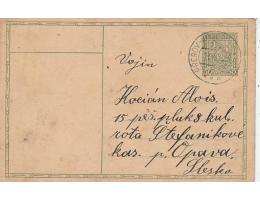 Vojín
Hocián Alois.
15 pěš. pluk 8 kul.
rota Štefanikove
kas. p. Opava.
Slesko